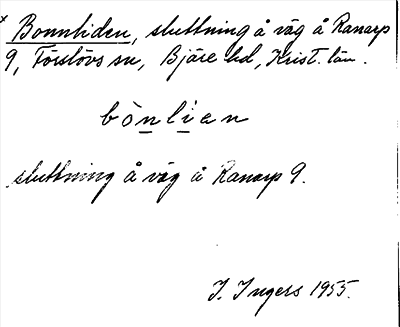 x Bonnliden, sluttning å väg å Ranarp
9, Förslövs sn, Bjäre hd, Krist. län.
bònlìen
sluttning å väg å Ranarp 9.
I. Ingers 1955.